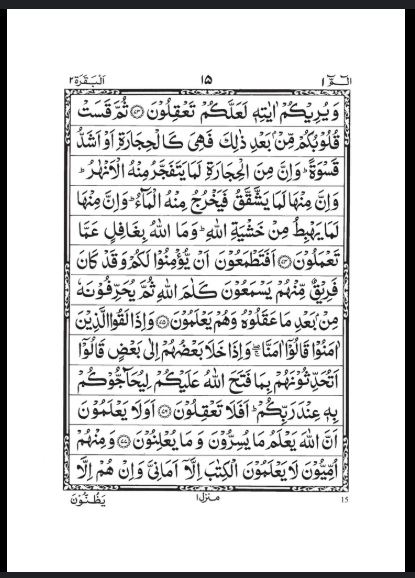 الٓمّٓ ١ ١٥ اَلْبَقَرَة ٢
وَيُرِيْكُمْ اٰيٰتِهٖ لَعَلَّكُمْ تَعْقِلُوْنَ ﴿٧٣﴾ ثُمَّ قَسَتْ
قُلُوْبُكُمْ مِّنْۢ بَعْدِ ذٰلِكَ فَهِىَ كَالْحِجَارَةِ اَوْ اَشَدُّ
قَسْوَةً ؕ وَاِنَّ مِنَ الْحِجَارَةِ لَمَا يَتَفَجَّرُ مِنْهُ الْاَنْهٰرُ ؕ
وَاِنَّ مِنْهَا لَمَا يَشَّقَّقُ فَيَخْرُجُ مِنْهُ الْمَآءُ ؕ وَاِنَّ مِنْهَا
لَمَا يَهْبِطُ مِنْ خَشْيَةِ اللّٰهِ ؕ وَمَا اللّٰهُ بِغَافِلٍ عَمَّا
تَعْمَلُوْنَ ﴿٧٤﴾ اَفَتَطْمَعُوْنَ اَنْ يُّؤْمِنُوْا لَكُمْ وَقَدْ كَانَ
فَرِيْقٌ مِّنْهُمْ يَسْمَعُوْنَ كَلٰمَ اللّٰهِ ثُمَّ يُحَرِّفُوْنَهٗ
مِنْۢ بَعْدِ مَا عَقَلُوْهُ وَهُمْ يَعْلَمُوْنَ ﴿٧٥﴾ وَاِذَا لَقُوا الَّذِيْنَ
اٰمَنُوْا قَالُوْٓا اٰمَنَّا ۖۚ وَاِذَا خَلَا بَعْضُهُمْ اِلٰى بَعْضٍ قَالُوْٓا
اَتُحَدِّثُوْنَهُمْ بِمَا فَتَحَ اللّٰهُ عَلَيْكُمْ لِيُحَآجُّوْكُمْ
بِهٖ عِنْدَ رَبِّكُمْ ؕ اَفَلَا تَعْقِلُوْنَ ﴿٧٦﴾ اَوَلَا يَعْلَمُوْنَ
اَنَّ اللّٰهَ يَعْلَمُ مَا يُسِرُّوْنَ وَمَا يُعْلِنُوْنَ ﴿٧٧﴾ وَمِنْهُمْ
اُمِّيُّوْنَ لَا يَعْلَمُوْنَ الْكِتٰبَ اِلَّآ اَمَانِىَّ وَاِنْ هُمْ اِلَّا
15 منزل ١ يَظُنُّوْنَ